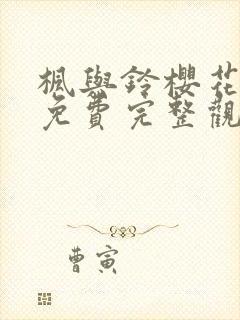 楓與鈴櫻花
免費完整觀
曹寅